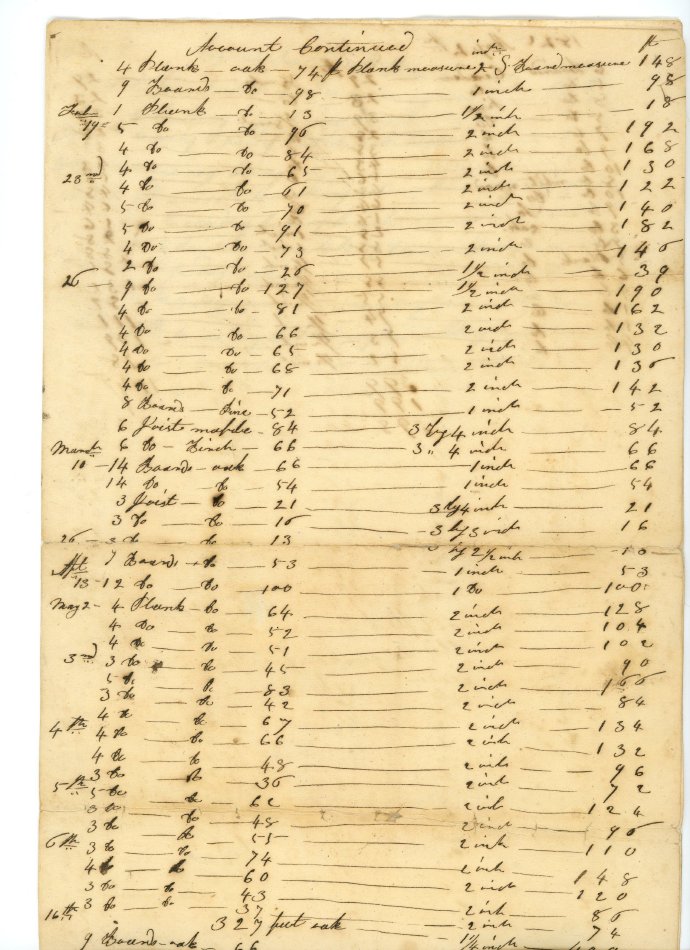 Account Continued
4 Plank - oak - 74 ft Plank measure 2 inch Board measure 148 ft
9 Boards - Do - 98 1 inch 98
1 Plank - Do - 13 1 1/2 inch 18
19 5 Do - Do - 96 2 inch 192
4 Do - Do - 84 2 inch 168
4 Do - Do - 65 2 inch 130
23rd 4 Do - Do - 61 2 inch 122
5 Do - Do - 70 2 inch 140
5 Do - Do - 91 2 inch 182
4 Do - Do - 73 2 inch 146
2 Do - Do - 26 1 1/2 inch 39
26 - 9 Do - Do - 127 1 1/2 inch 190
4 Do - Do - 81 2 inch 162
4 Do - Do - 66 2 inch 132
4 Do - Do - 65 2 inch 130
4 Do - Do - 68 2 inch 136
4 Do - Do - 71 2 inch 142
8 Boards - Pine - 52 1 inch 52
6 Joist maple - 84 3 by 4 inch 84
March 6 Do - Birch - 66 3 " 4 inch 66
10 - 14 Boards - oak - 66 1 inch 66
14 Do - Do - 54 1 inch 54
3 Joist - Do - 21 3 by 4 inch 21
3 Do - Do - 16 3 by 3 inch 16
26 - 3 Do - Do - 13 3 by 2 1/2 inch 10
7 Boards - Do - 53 1 inch 53
13 - 12 Do - Do - 100 1 Do 100
May 2 - 4 Plank - Do - 64 2 inch 128
4 Do - Do - 52 2 inch 104
4 Do - Do - 51 2 inch 102
3rd 3 Do - Do - 45 2 inch 90
5 Do - Do - 83 2 inch 166
3 Do - 42 84
4 Do - Do - 67 2 inch 134
4th 4 Do - Do - 66 2 inch 132
4 Do - Do - 48 2 inch 96
3 Do - Do - 36 2 inch 72
5th 5 Do - Do - 62 2 inch 124
3 Do - Do - 48 2 inch 96
6th 3 Do - Do - 55 110
3 Do - Do - 74 2 inch 148
4 Do - 60 2 inch 120
3 Do - Do - 43 2 inch 86
16th 3 Do - Do - 37 74
327 feet oak
9 Boards - oak - 66 1 1/4 inch